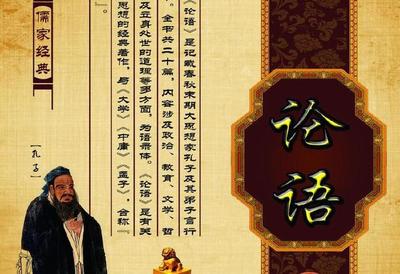 论语
《论语》是记载春秋末期大思想家孔子及其弟子言行
。全书共二十篇，内容涉及政治、教育、文学、哲
及立身处世的道理等多方面，为语录体。《论语》是有关
思想的经典著作，与《大学》《中庸》《孟子》，合称“
”。
儒家经典
[孔子]